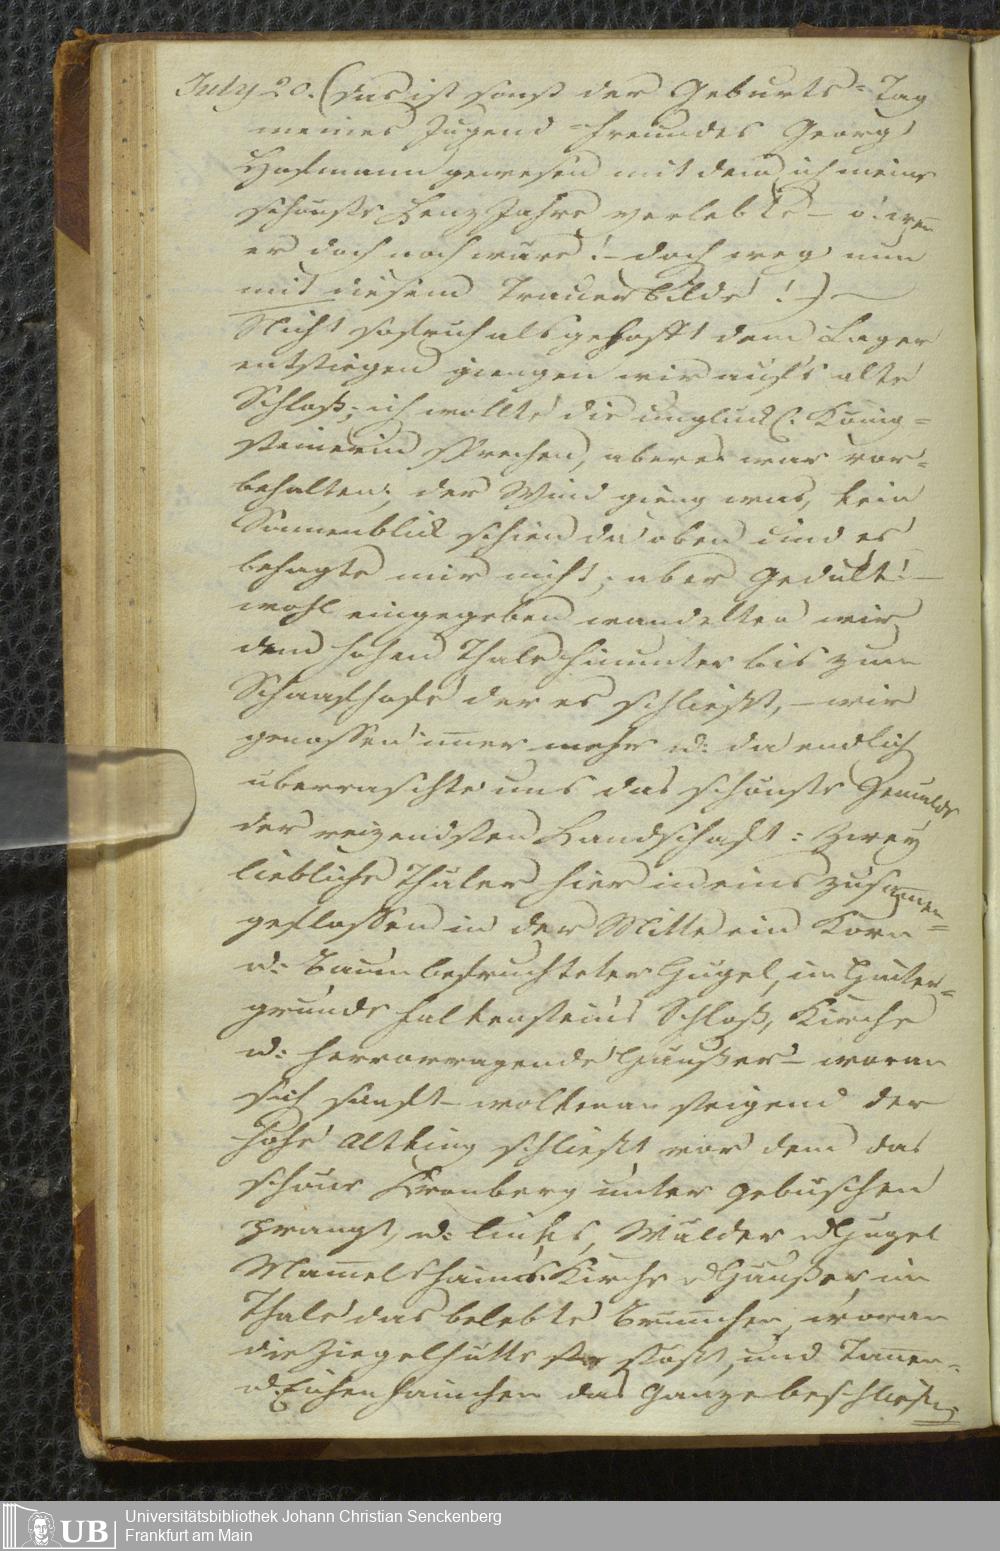 July 20. (das ist sonst der Geburts=Tag
meines Jugend=freundes Georg
Hofmann gewesen mit dem ich meine
schönste Lenz Jahre verlebte – o! wen̅
er doch noch wäre! – doch weg nun
mit diesem Trauerbilde! –)
Nicht so fruh als gehofft dem Lager
entstiegen giengen wir auf's alte
Schloß; ich wollte die unglückl. König=
steinerin sprechen, aber es war vor=
behalten; der Wind gieng was, kein
Sonnenblick schien da oben und es
behagte mir nicht; aber Gedult! –
wohl eingegeben wandelten wir
dem hohen Thale hinunter bis zum
Schaafhofe der es schließt, – wir
genossen im̅er mehr u: da endlich
uberraschte uns das schönste Gemälde
der reizendsten Landschaft: Zwey
liebliche Thäler hier in eins zusam̅en=
geflossen in der Mitte ein Korn
u: Baum befruchteter Hugel, im Hinter=
grunde Falkensteins Schloß, Kirche
u: hervorragende Häußer – woran
sich sanft – wolkenan steigend der
hohe Altking schließt vor dem das
schöne Kronberg unter gebuschen
prangt, u: links, Wälder u Hugel
Mam̅elshains Kirche u Häußer, im
Thale das belebte Brun̅chen, woran
die Ziegelhütte stößt, und Tan̅en=
u: Eichenhainchen das Ganze beschließen
Universitätsbibliothek Johann Christian Senckenberg
Frankfurt am Main
UB